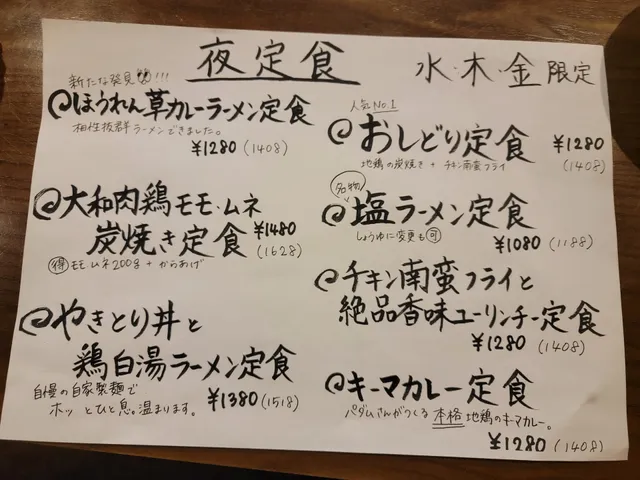 夜定食
水・木・金 限定
新たな発見!!!
ほうれん草カレーラーメン定食
相性抜群ラーメンできました。
¥1280 (1408)
大和肉鶏モモ・ムネ
炭焼き定食 ¥1480
(1628)
得 モモムネ200g + からあげ
やきとり丼と
鶏白湯ラーメン定食
自慢の自家製麺で
ホッとひと息。温まります。
¥1380 (1518)
人気No.1
おしどり定食 ¥1280
(1408)
地鶏の炭焼き + チキン南蛮フライ
名物
塩ラーメン定食
しょうゆに変更も可
¥1080 (1188)
チキン南蛮フライと
絶品香味ユーリンチー定食
¥1280 (1408)
キーマカレー定食
パダムさんがつくる 本格 地鶏のキーマカレー。
¥1280 (1408)